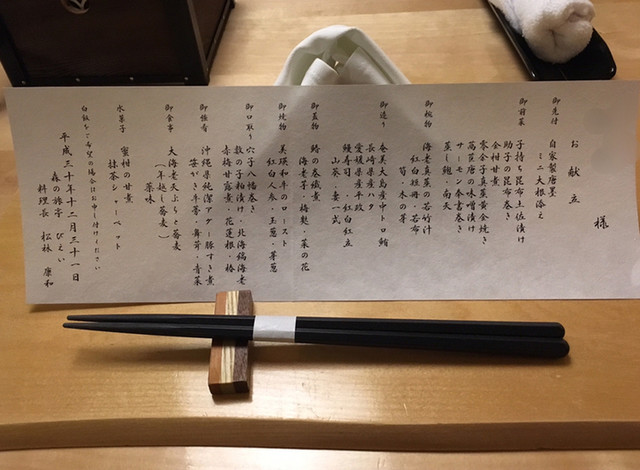 お献立
様
御先付
自家製唐墨
ミニ大根添え
御前菜
子持ち昆布土佐漬け
助子の昆布巻き
金柑甘煮
零余子真薯黄金焼き
萵苣唐の味噌漬け
サーモン奉書巻き
蒸し鮑・南天
御椀物
海老真薯の若竹汁
紅白短冊・若布
筍・木の芽
御造り
奄美大島産中トロ鮪
長崎県産ハタ
愛媛県産平政
鰻寿司・紅白紅立
山葵・妻一式
御蓋物
鰆の巻織蒸
海老芋・梅麩・菜の花
御焼物
美瑛和牛のロースト
紅白人参・玉葱・芽葱
御口取り
穴子八幡巻き
数の子粕漬け・北海縞海老
赤梅甘露煮・花蓮根・椿
御強肴
沖縄県純潔アグー豚すき煮
笹がき牛蒡・舞茸・青菜
御食事
大海老天ぷらと蕎麦
(年越し蕎麦)
薬味
水菓子
蜜柑の甘煮
抹茶シャーベット
白飯をご希望の場合はお申し付けください
平成三十年十二月三十一日
森の旅亭 びえい
料理長 松林 康和